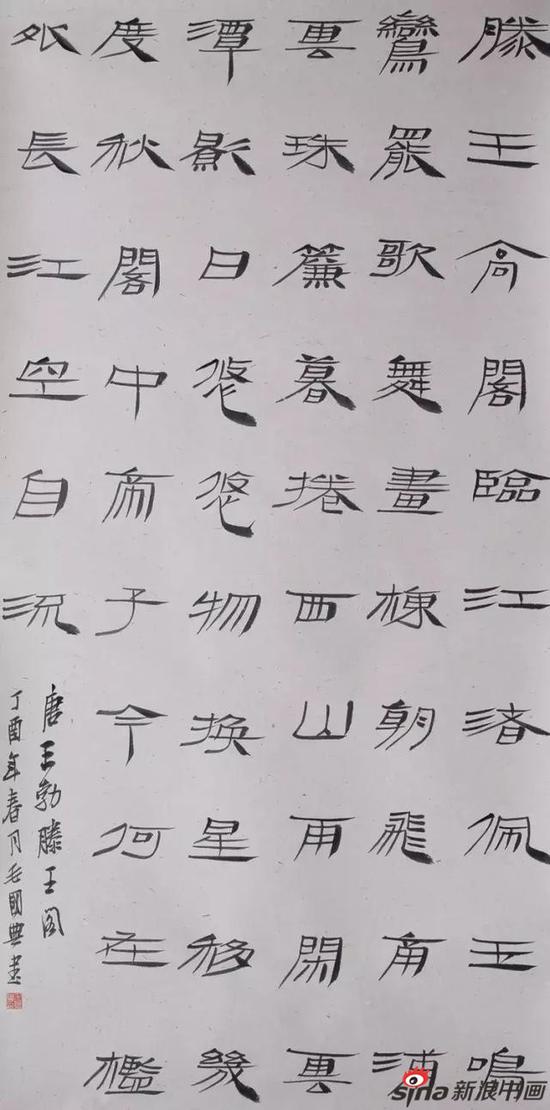 滕王高閣臨江渚佩玉鳴
鸞罷歌舞畫棟朝飛南浦
雲珠簾暮捲西山雨閑雲
潭影日悠悠物換星移幾
度秋閣中帝子今何在檻
外長江空自流
唐王勃滕王阁
丁酉年春月毛國典書
sina 新浪书画